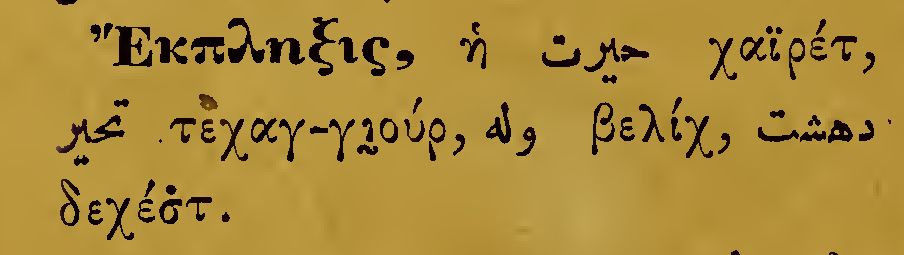 Ἔκπληξις, ἡ حيرت χαϊρέτ,
تحير τεχαγ-γιούρ, وله βελίχ, دهشت
δεχέσ̇τ.